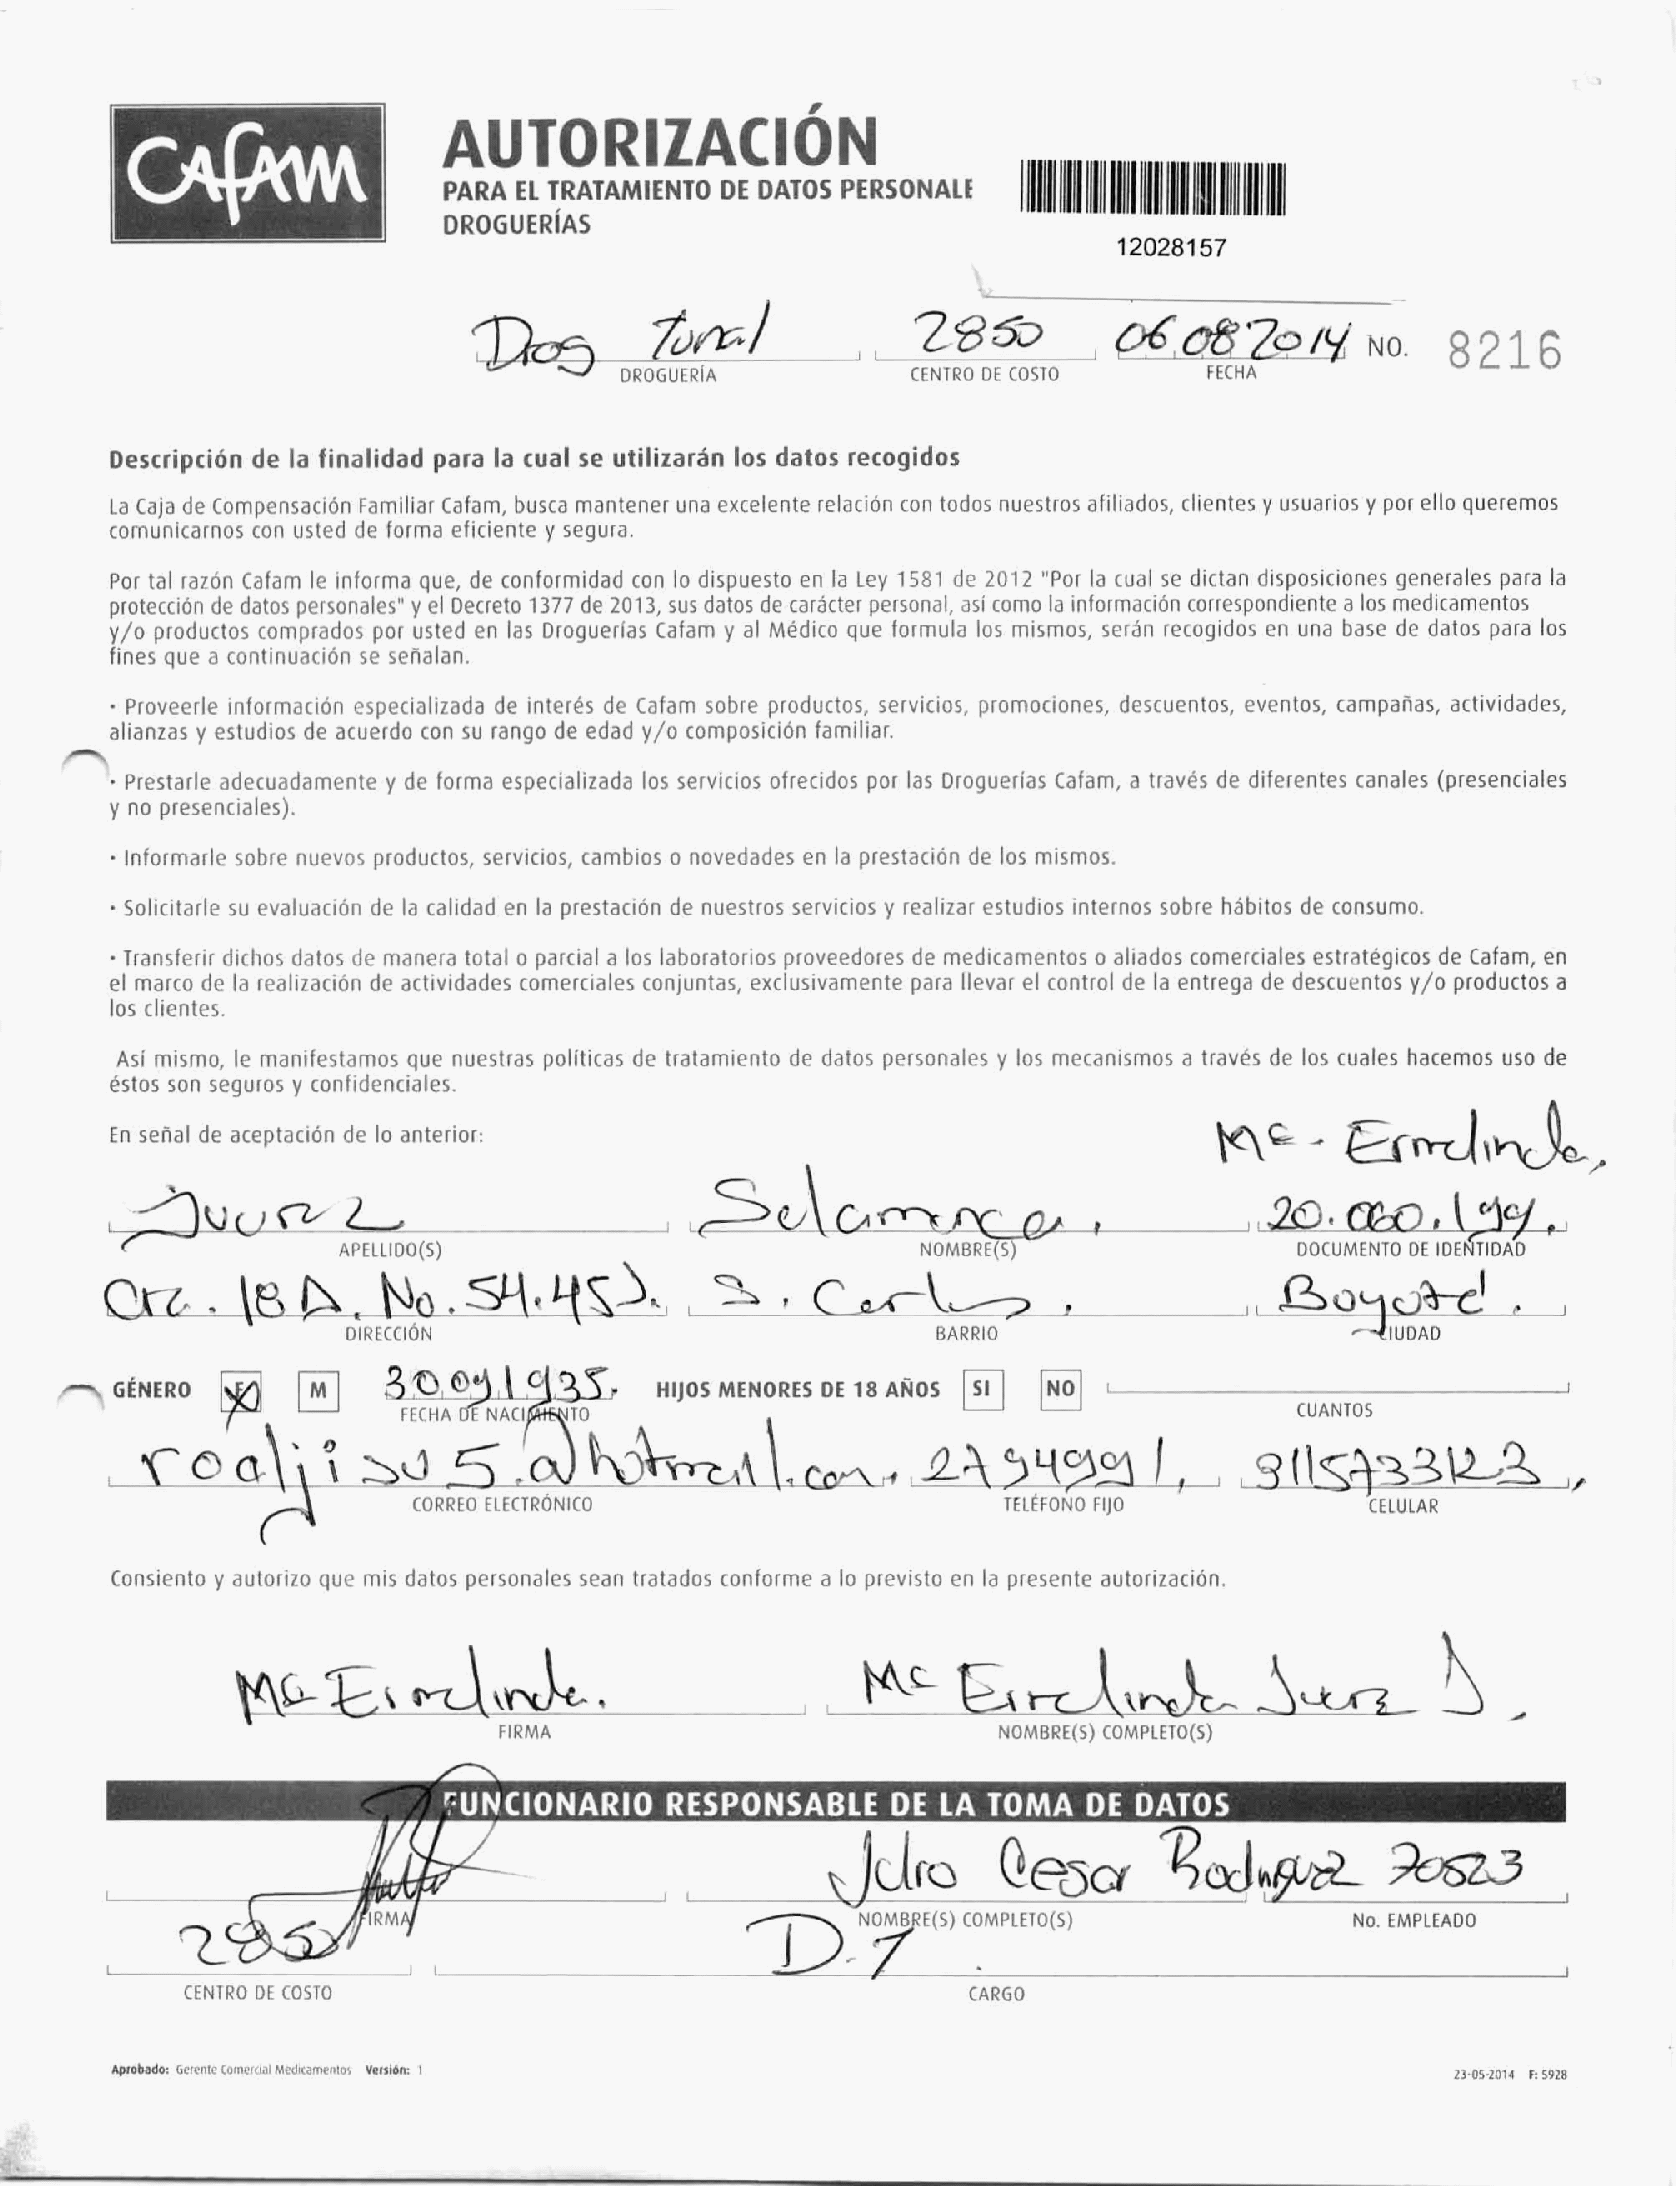 CAFAM
AUTORIZACIÓN
PARA EL TRATAMIENTO DE DATOS PERSONALE
DROGUERÍAS
12028157
Drog Tunal 2850 06 08 2014 NO. 8216
DROGUERÍA CENTRO DE COSTO FECHA
Descripción de la finalidad para la cual se utilizarán los datos recogidos
La Caja de Compensación Familiar Cafam, busca mantener una excelente relación con todos nuestros afiliados, clientes y usuarios y por ello queremos
comunicarnos con usted de forma eficiente y segura.
Por tal razón Cafam le informa que, de conformidad con lo dispuesto en la Ley 1581 de 2012 "Por la cual se dictan disposiciones generales para la
protección de datos personales" y el Decreto 1377 de 2013, sus datos de carácter personal, así como la información correspondiente a los medicamentos
y/o productos comprados por usted en las Droguerías Cafam y al Médico que formula los mismos, serán recogidos en una base de datos para los
fines que a continuación se señalan.
· Proveerle información especializada de interés de Cafam sobre productos, servicios, promociones, descuentos, eventos, campañas, actividades,
alianzas y estudios de acuerdo con su rango de edad y/o composición familiar.
· Prestarle adecuadamente y de forma especializada los servicios ofrecidos por las Droguerías Cafam, a través de diferentes canales (presenciales
y no presenciales).
· Informarle sobre nuevos productos, servicios, cambios o novedades en la prestación de los mismos.
· Solicitarle su evaluación de la calidad en la prestación de nuestros servicios y realizar estudios internos sobre hábitos de consumo.
· Transferir dichos datos de manera total o parcial a los laboratorios proveedores de medicamentos o aliados comerciales estratégicos de Cafam, en
el marco de la realización de actividades comerciales conjuntas, exclusivamente para llevar el control de la entrega de descuentos y/o productos a
los clientes.
Así mismo, le manifestamos que nuestras políticas de tratamiento de datos personales y los mecanismos a través de los cuales hacemos uso de
éstos son seguros y confidenciales.
En señal de aceptación de lo anterior:
Ma. Ermelinda,
Salamanca,
APELLIDO(S) NOMBRE(S) DOCUMENTO DE IDENTIDAD
Crz. 18 A. No. 54.45 S. Carlos, Bogotá.
DIRECCIÓN BARRIO CIUDAD
GÉNERO F M 30091935. HIJOS MENORES DE 18 AÑOS SI NO
FECHA DE NACIMIENTO CUANTOS
2794991, 3115733123,
CORREO ELECTRÓNICO TELÉFONO FIJO CELULAR
Consiento y autorizo que mis datos personales sean tratados conforme a lo previsto en la presente autorización.
Ma Ermelinda. Ma Ermelinda
FIRMA NOMBRE(S) COMPLETO(S)
FUNCIONARIO RESPONSABLE DE LA TOMA DE DATOS
Julio Cesar Rodriguez 70523
FIRMA NOMBRE(S) COMPLETO(S) No. EMPLEADO
2850 D.T.
CENTRO DE COSTO CARGO
Aprobado: Gerente Comercial Medicamentos Versión: 1
23-05-2014 F: 5928